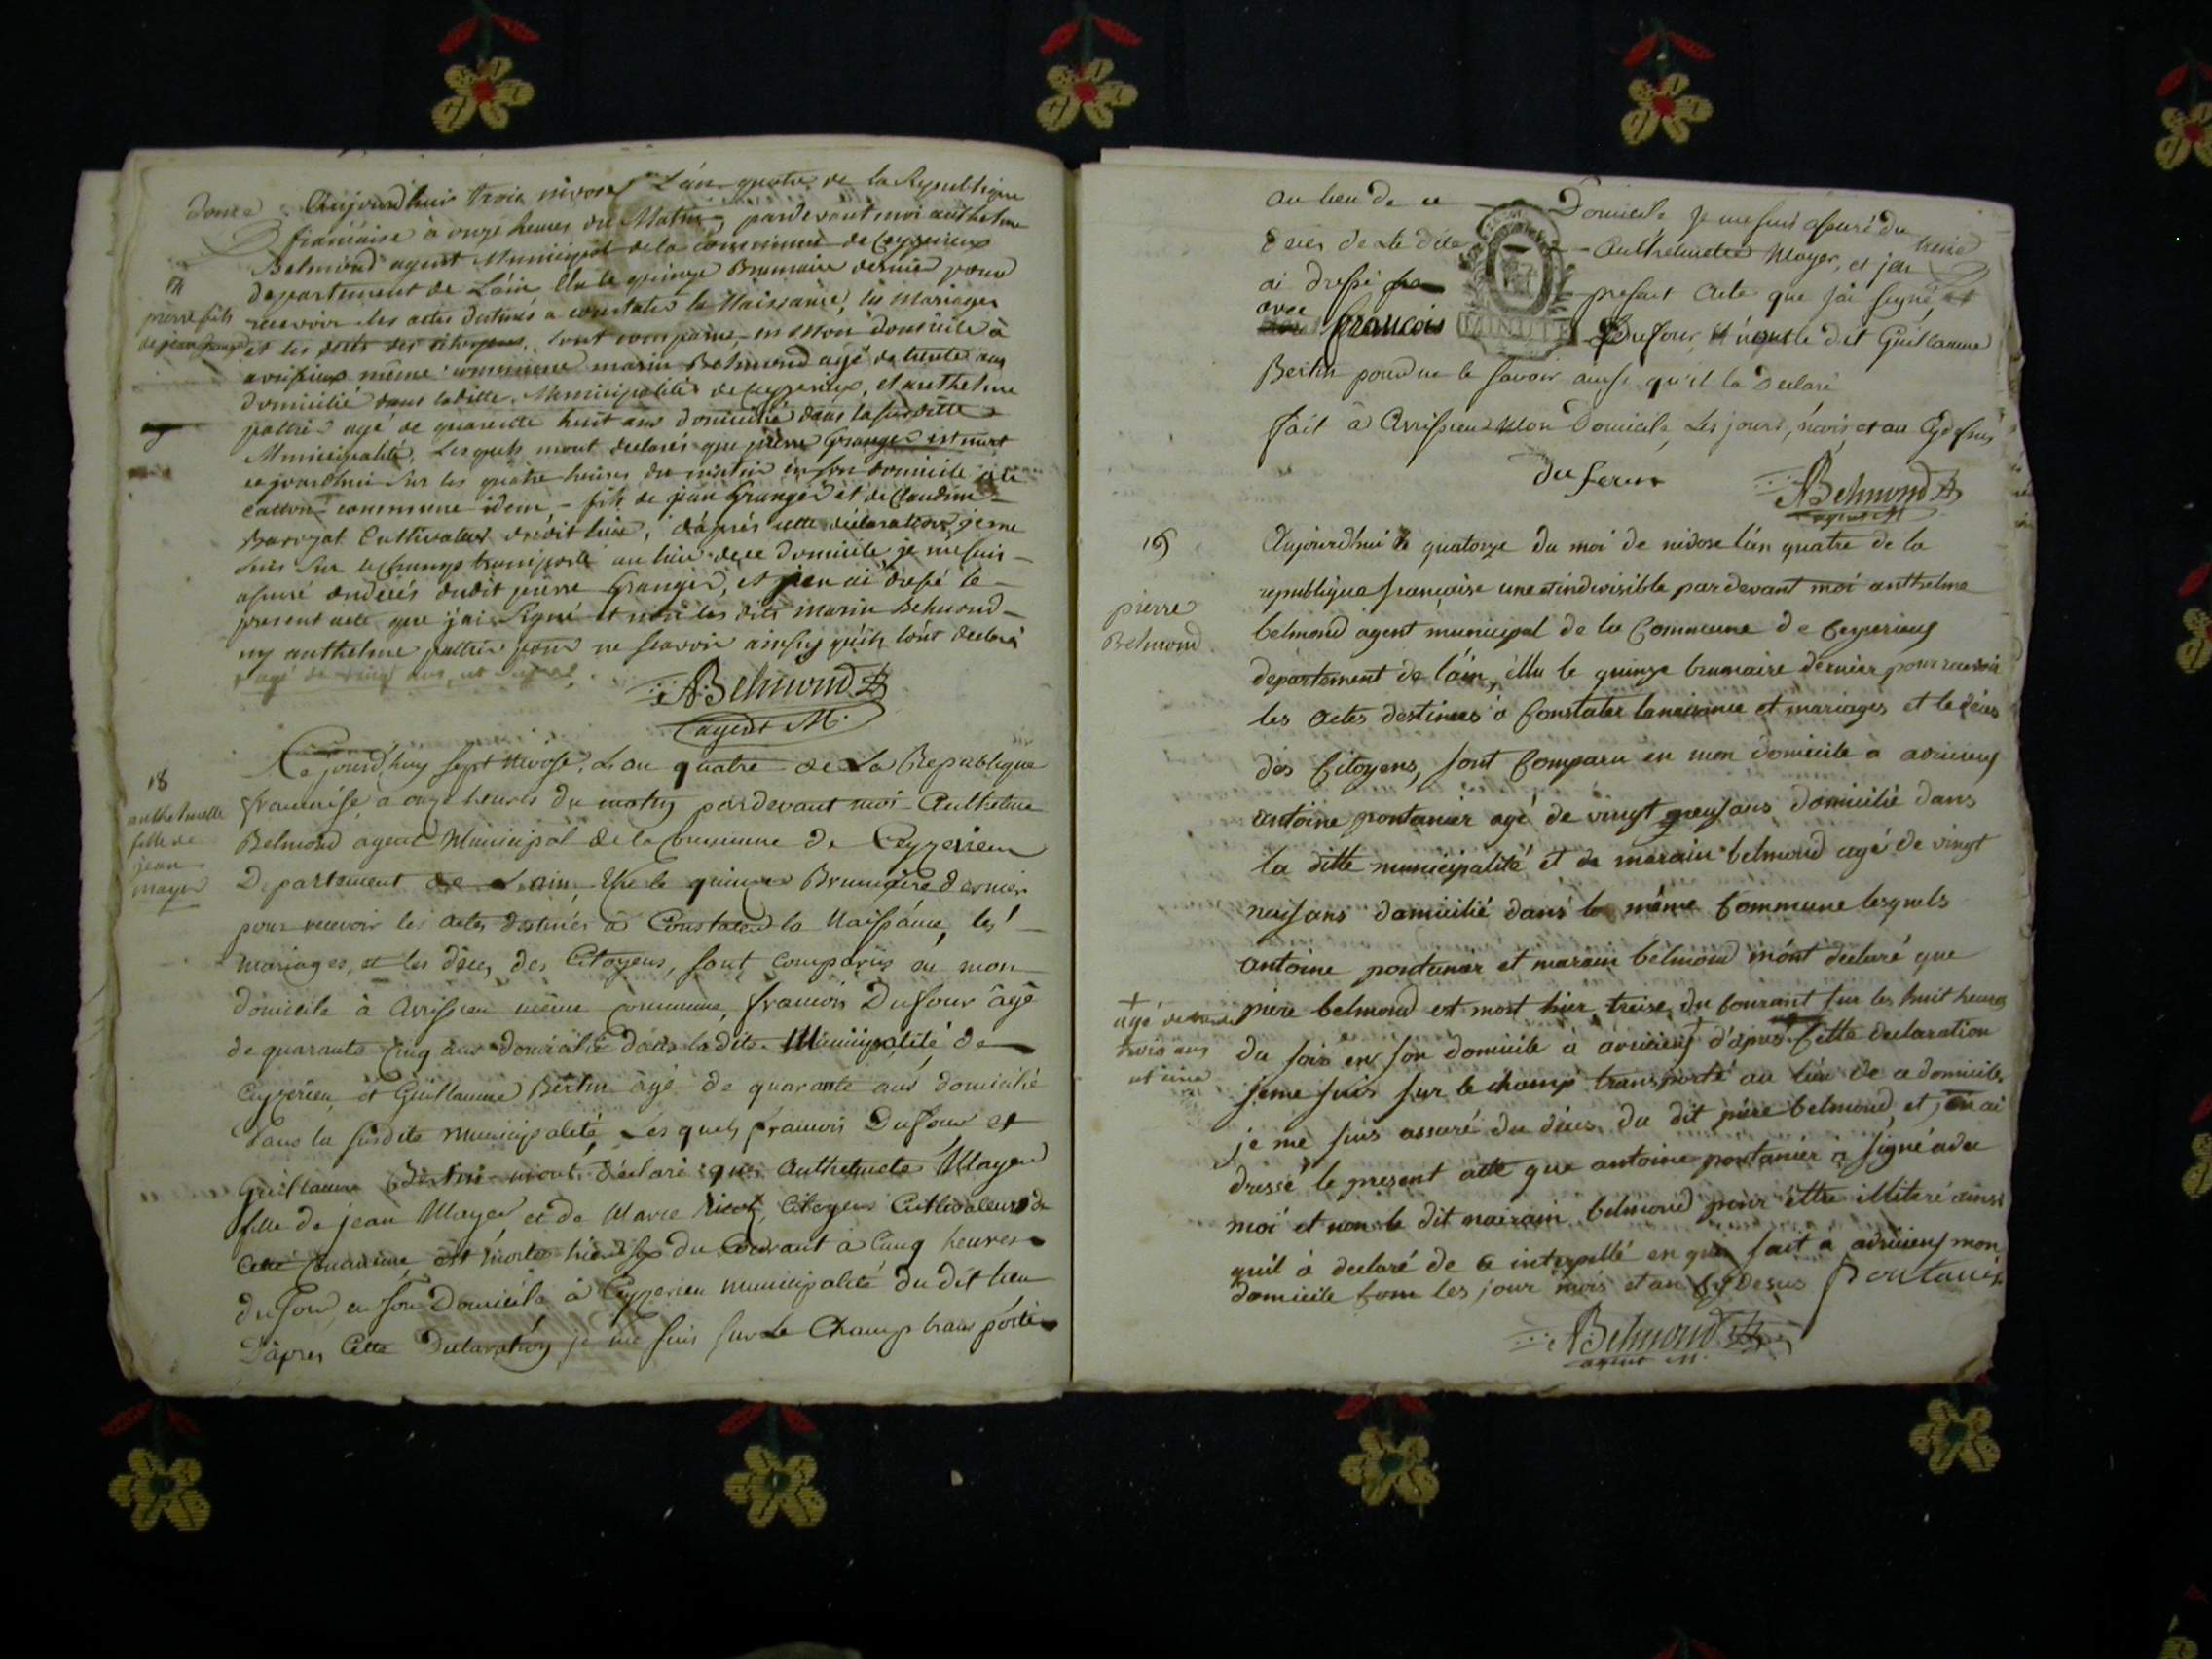 Douze
Aujourd'hui trois nivose L'an quatre de la Republique
francaise à onze heures du Matin, pardevant moi anthelme
Belmond agent Municipal de la commune de Ceyzerieux
departement de L'ain Elu le quinze Brumaire dernier pour
recevoir les actes destinés a constater la Naissance, les Mariages
et les décès des citoyens, sont comparus en Mon domicile à
avrissieux même commune marin Belmond agé de trente ans
domicilié dans laditte Municipalité de Ceyzerieux, et anthelme
pattru agé de quarente huit ans domicilié dans la susditte
Municipalité, Lesquels mont declarés que pierre Granger est mort
ce jourdhui sur les quatre heures du matin en son domicile
commune idem, fils de jean Granger et de Claudine
Cultivateur dudit lieu, d'aprés cette déclaration je me
suis sur le champ transporté au lieu de ce domicile, je me suis
assuré du décés dudit pierre Granger, et jen ai dressé le
present acte que j'ai Signé et non les dits marin Belmond
ny anthelme pattru pour ne scavoir ainsy qu'ils l'ont declaré
pierre fils
de jean Granger
ABelmond
agent M.
18
anthelmette
fille de
jean
mayer
Ce jourd'huy sept Nivose, L'an quatre de La Republique
francaise, à onze heures du matin pardevant moi Anthelme
Belmond agent Municipal de la Commune de Ceyzerieu
Departement de L'ain, Elu le quinze Brumaire dernier
pour recevoir les actes destinés à Constater la Naissance, les
mariages, et les décès des Citoyens, sont comparus en mon
domicile à Avrissieu même commune, francois Dufour âgé
de quarante cinq ans domicilié dans la dite Municipalité de
Ceyzerieu, et Guillaume Bertin âgé de quarante ans domicilié
dans la susdite municipalité, Lesquels francois Dufour et
Guillaume Bertin m'ont déclaré que Anthelmete Mayer
fille de jean Mayer et de Marie Citoyens Cultivateurs de
Cette Commune, est morte hier six du Courant à Cinq heures
du soir, en son Domicile à Ceyzerieu municipalité du dit lieu
D'après Cette Declaration je me suis sur le Champ transporté
au lieu de ce Domicile je me suis assuré du
décès de La dite Anthelmete Mayer, et j'en
treize
ai dressé le present Acte que j'ai signé,
avec francois Dufour, et non le dit Guillaume
Bertin pour ne le savoir ainsi qu'il l'a Declaré
MINUTE
Fait à Avrissieu Mon Domicile, Les jours, mois et an Cy dessus
du four
ABelmond
agent M
19
pierre
Belmond
Aujourdhui le quatorze du moi de nivose l'an quatre de la
republique francaise une et indivisible pardevant moi anthelme
belmond agent municipal de la Commune de Ceyzerieux
département de l'ain, élu le quinze brumaire dernier pour recevoir
les actes destinees a Constater la naissance et mariages et le déces
des Citoyens, sont Comparu en mon domicile a avrissieux
antoine pontanier agé de vingt neuf ans domicilié dans
la ditte municipalité et de marain belmond agé de vingt
neuf ans domicilié dans la même Commune lesquels
antoine pontanier et marain belmond m'ont declaré que
piere belmond est mort hier treise du Courant sur les huit heures
du soir en son domicile a avrissieux + d'apres Cette declaration
+
agé de
trois ans
et une
je me suis sur le champ transporté au lieu de ce domicile
je me suis assuré du déces du dit piere belmond, et j'en ai
dressé le present acte que antoine pontanier a signé avec
moi et non le dit marain belmond pour ettre illiteré ainsi
quil a declaré de ce interpellé en quoi fait a avrissieux mon
domicile les jour mois et an Cy Desus Pontanier
ABelmond
agent M.